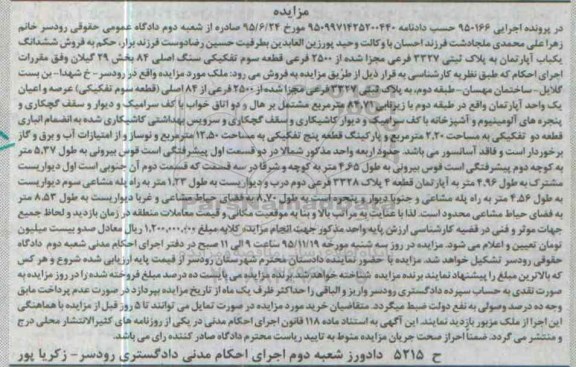 مزایده
در پرونده اجرایی ۹۵۰۱۶۶ حسب دادنامه ۹۵۰۹۹۷۱۴۲۵۲۰۰۴۴۰ مورخ ۹۵/۶/۲۴ صادره از شعبه دوم دادگاه عمومی حقوقی رودسر خانم
زهرا علی محمدی ملجادشت فرزند احسان با وکالت وحید پورزین العابدین بطرفیت حسین رضادوست فرزند برار، حکم به فروش ششدانگ
یکباب آپارتمان به پلاک ثبتی ۳۳۲۷ فرعی مجزا شده از ۲۵۰۰ فرعی قطعه سوم تفکیکی سنگ اصلی ۸۴ بخش ۲۹ گیلان وفق مقررات
اجرای احکام که طبق نظریه کارشناسی به قرار ذیل از طریق مزایده به فروش می رود: ملک مورد مزایده واقع در رودسر- خ شهدا- بن بست
گلایل- ساختمان مهسان- طبقه دوم، به پلاک ثبتی ۳۳۲۷ فرعی مجزا شده از ۲۵۰۰ فرعی از ۸۴ اصلی (قطعه سوم تفکیکی) عرصه و اعیان
یک واحد آپارتمان واقع در طبقه دوم با زیربنای مترمربع مشتمل بر هال و دو اتاق خواب با کف سرامیک و دیوار و سقف گچکاری و
پنجره های آلومینیوم و آشپزخانه با کف سرامیک و دیوار کاشیکاری و سقف گچکاری و سرویس بهداشتی کاشیکاری شده به انضمام انباری
قطعه دو تفکیکی به مساحت ۲.۲۰ مترمربع و پارکینگ قطعه پنج تفکیکی به مساحت ۱۲.۵۰ مترمربع و نوساز و از امتیازات آب و برق و گاز
برخوردار است و فاقد آسانسور می باشد. حدود اربعه واحد مذکور شمالا در دو قسمت اول پیشرفتگی است قوس بیرونی به طول ۵.۳۷ متر
به کوچه دوم پیشرفتگی است قوس بیرونی به طول ۴.۶۵ متر به کوچه و شرقا در سه قسمت که قسمت دوم آن جنوبی است اول دیواریست
مشترک به طول ۴.۹۶ متر به آپارتمان قطعه ۴ پلاک ۳۳۲۸ فرعی دوم درب و دیواریست به طول ۱.۲۳ متر به راه پله مشاعی سوم دیواریست
به طول ۴.۵۶ متر به راه پله مشاعی و جنوبا دیوار و پنجره است به طول ۸.۷۰ متر به فضای حیاط مشاعی و غربا دیواریست به طول ۸.۵۳ متر
به فضای حیاط مشاعی محدود است. لذا با عنایت به مراتب بالا و بنا به موقعیت مکانی و قیمت معاملات منطقه در زمان بازدید و لحاظ جمیع
جهات موثر و فنی در قضیه کارشناسی ارزش پایه واحد مذکور جهت انجام مزایده کلابه مبلغ ۱,۲۰۰,۰۰۰,۰۰۰ ریال معادل صدو بیست میلیون
تومان تعیین و اعلام می شود. مزایده در روز سه شنبه مورخه ۹۵/۱۱/۱۹ ساعت ۹ الی ۱۱ صبح در دفتر اجرای احکام مدنی شعبه دوم دادگاه
حقوقی رودسر تشکیل خواهد شد. مزایده با حضور نماینده دادستان محترم شهرستان رودسر از قیمت پایه ارزیابی شده شروع و هر کس
که بالاترین مبلغ را پیشنهاد نمایند برنده مزایده شناخته خواهد شد. برنده مزایده می بایست ده درصد مبلغ فروخته شده را در روز مزایده به
صورت نقدی به حساب سپرده دادگستری رودسر واریز و الباقی را حداکثر ظرف یک ماه از تاریخ مزایده بپردازد در صورت عدم پرداخت مابقی
وجه ده درصد وصولی به نفع دولت ضبط میگردد. متقاضیان خرید مورد مزایده در صورت تمایل می توانند تا ۵ روز قبل از مزایده با هماهنگی
این اجرا از ملک مزبور بازدید نمایند. این آگهی به استناد ماده ۱۱۸ قانون اجرای احکام مدنی در یکی از روزنامه های کثیرالانتشار محلی درج
و منتشر می گردد. ضمناً احراز صحت جریان مزایده منوط به تایید ریاست محترم دادگاه صادر کننده رای می باشد.
ح ۵۲۱۵ دادورز شعبه دوم اجرای احکام مدنی دادگستری رودسر- زکریا پور